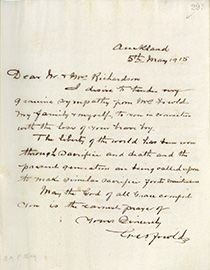 Auckland
5th May 1915
Dear Mr & Mrs Richardson
I desire to tender my
genuine sympathy from Mrs
my family & myself, to you in connection
with the loss of your brave boy
The liberty of the world has been won
through sacrifice and death and the
present generation are being called upon
to make similar sacrifice
May the God of all Grace
you is the earnest prayer of
Yours Sincerely